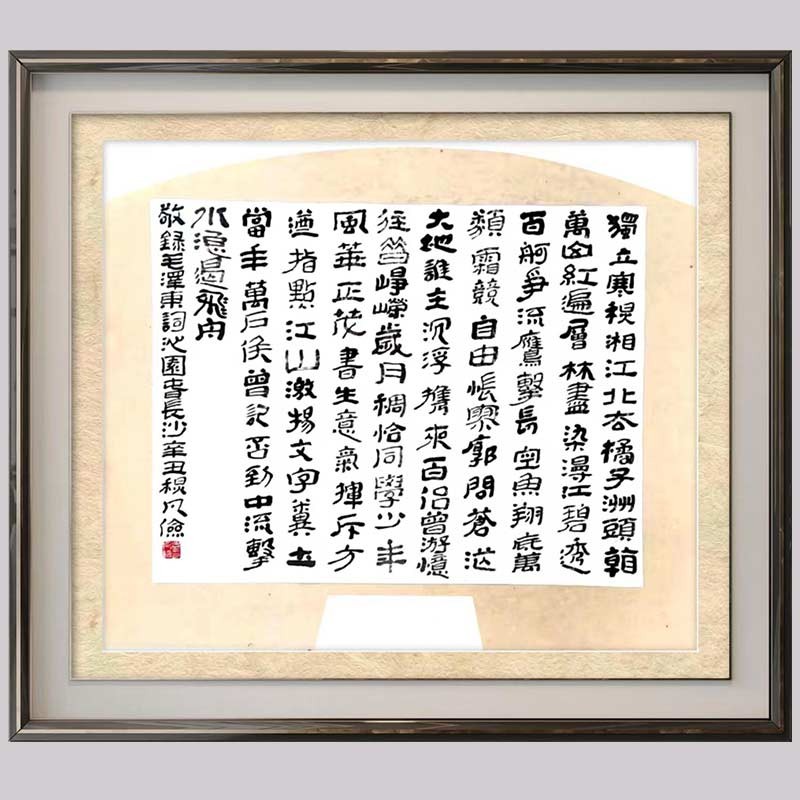 獨立寒穐湘江北去橘子洲頭看
萬山紅遍層林盡染漫江碧透
百舸爭流鷹擊長空魚翔底萬
類霜競自由悵寥廓問蒼茫
大地誰主沉浮攜來百侶曾游憶
往昔崢嶸歲月稠恰同學少年
風華正茂書生意氣揮斥方
遒指點江山激揚文字糞土
當年萬戶侯曾記否到中流擊
水浪遏飛舟
敬録毛澤東詞沁園春長沙辛丑穐凡儉